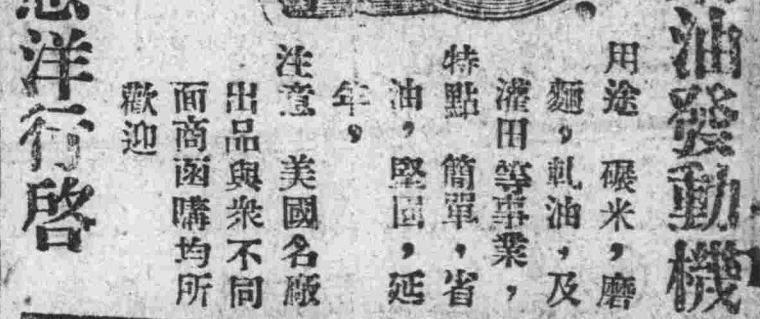 油發動機
用途　碾米，磨
麵，軋油，及
灌田等事業，
特點　簡單，省
油，堅固，延
年，
注意　美國名廠
出品與衆不同
面商函購均所
歡迎
洋行啓